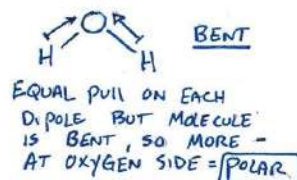 O
H H
BENT
EQUAL PULL ON EACH
DIPOLE BUT MOLECULE
IS BENT, SO MORE -
AT OXYGEN SIDE = POLAR